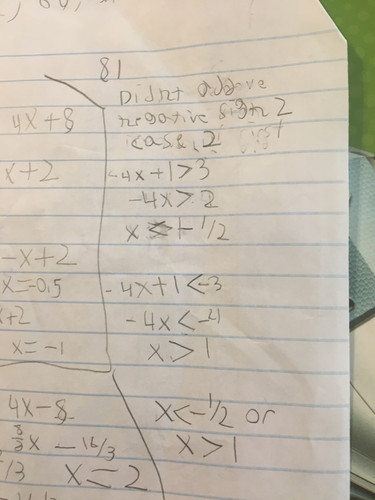 81
Didnt
negative sign 2
case, 2
4x+8
x+2
-4x+1>3
-4x>2
x<-1/2
-x+2
x=-0.5
-4x+1<-3
x+2
-4x<-4
x=-1
x>1
4x-8
x<-1/2 or
8/3x -16/3
x>1
/3 x=2